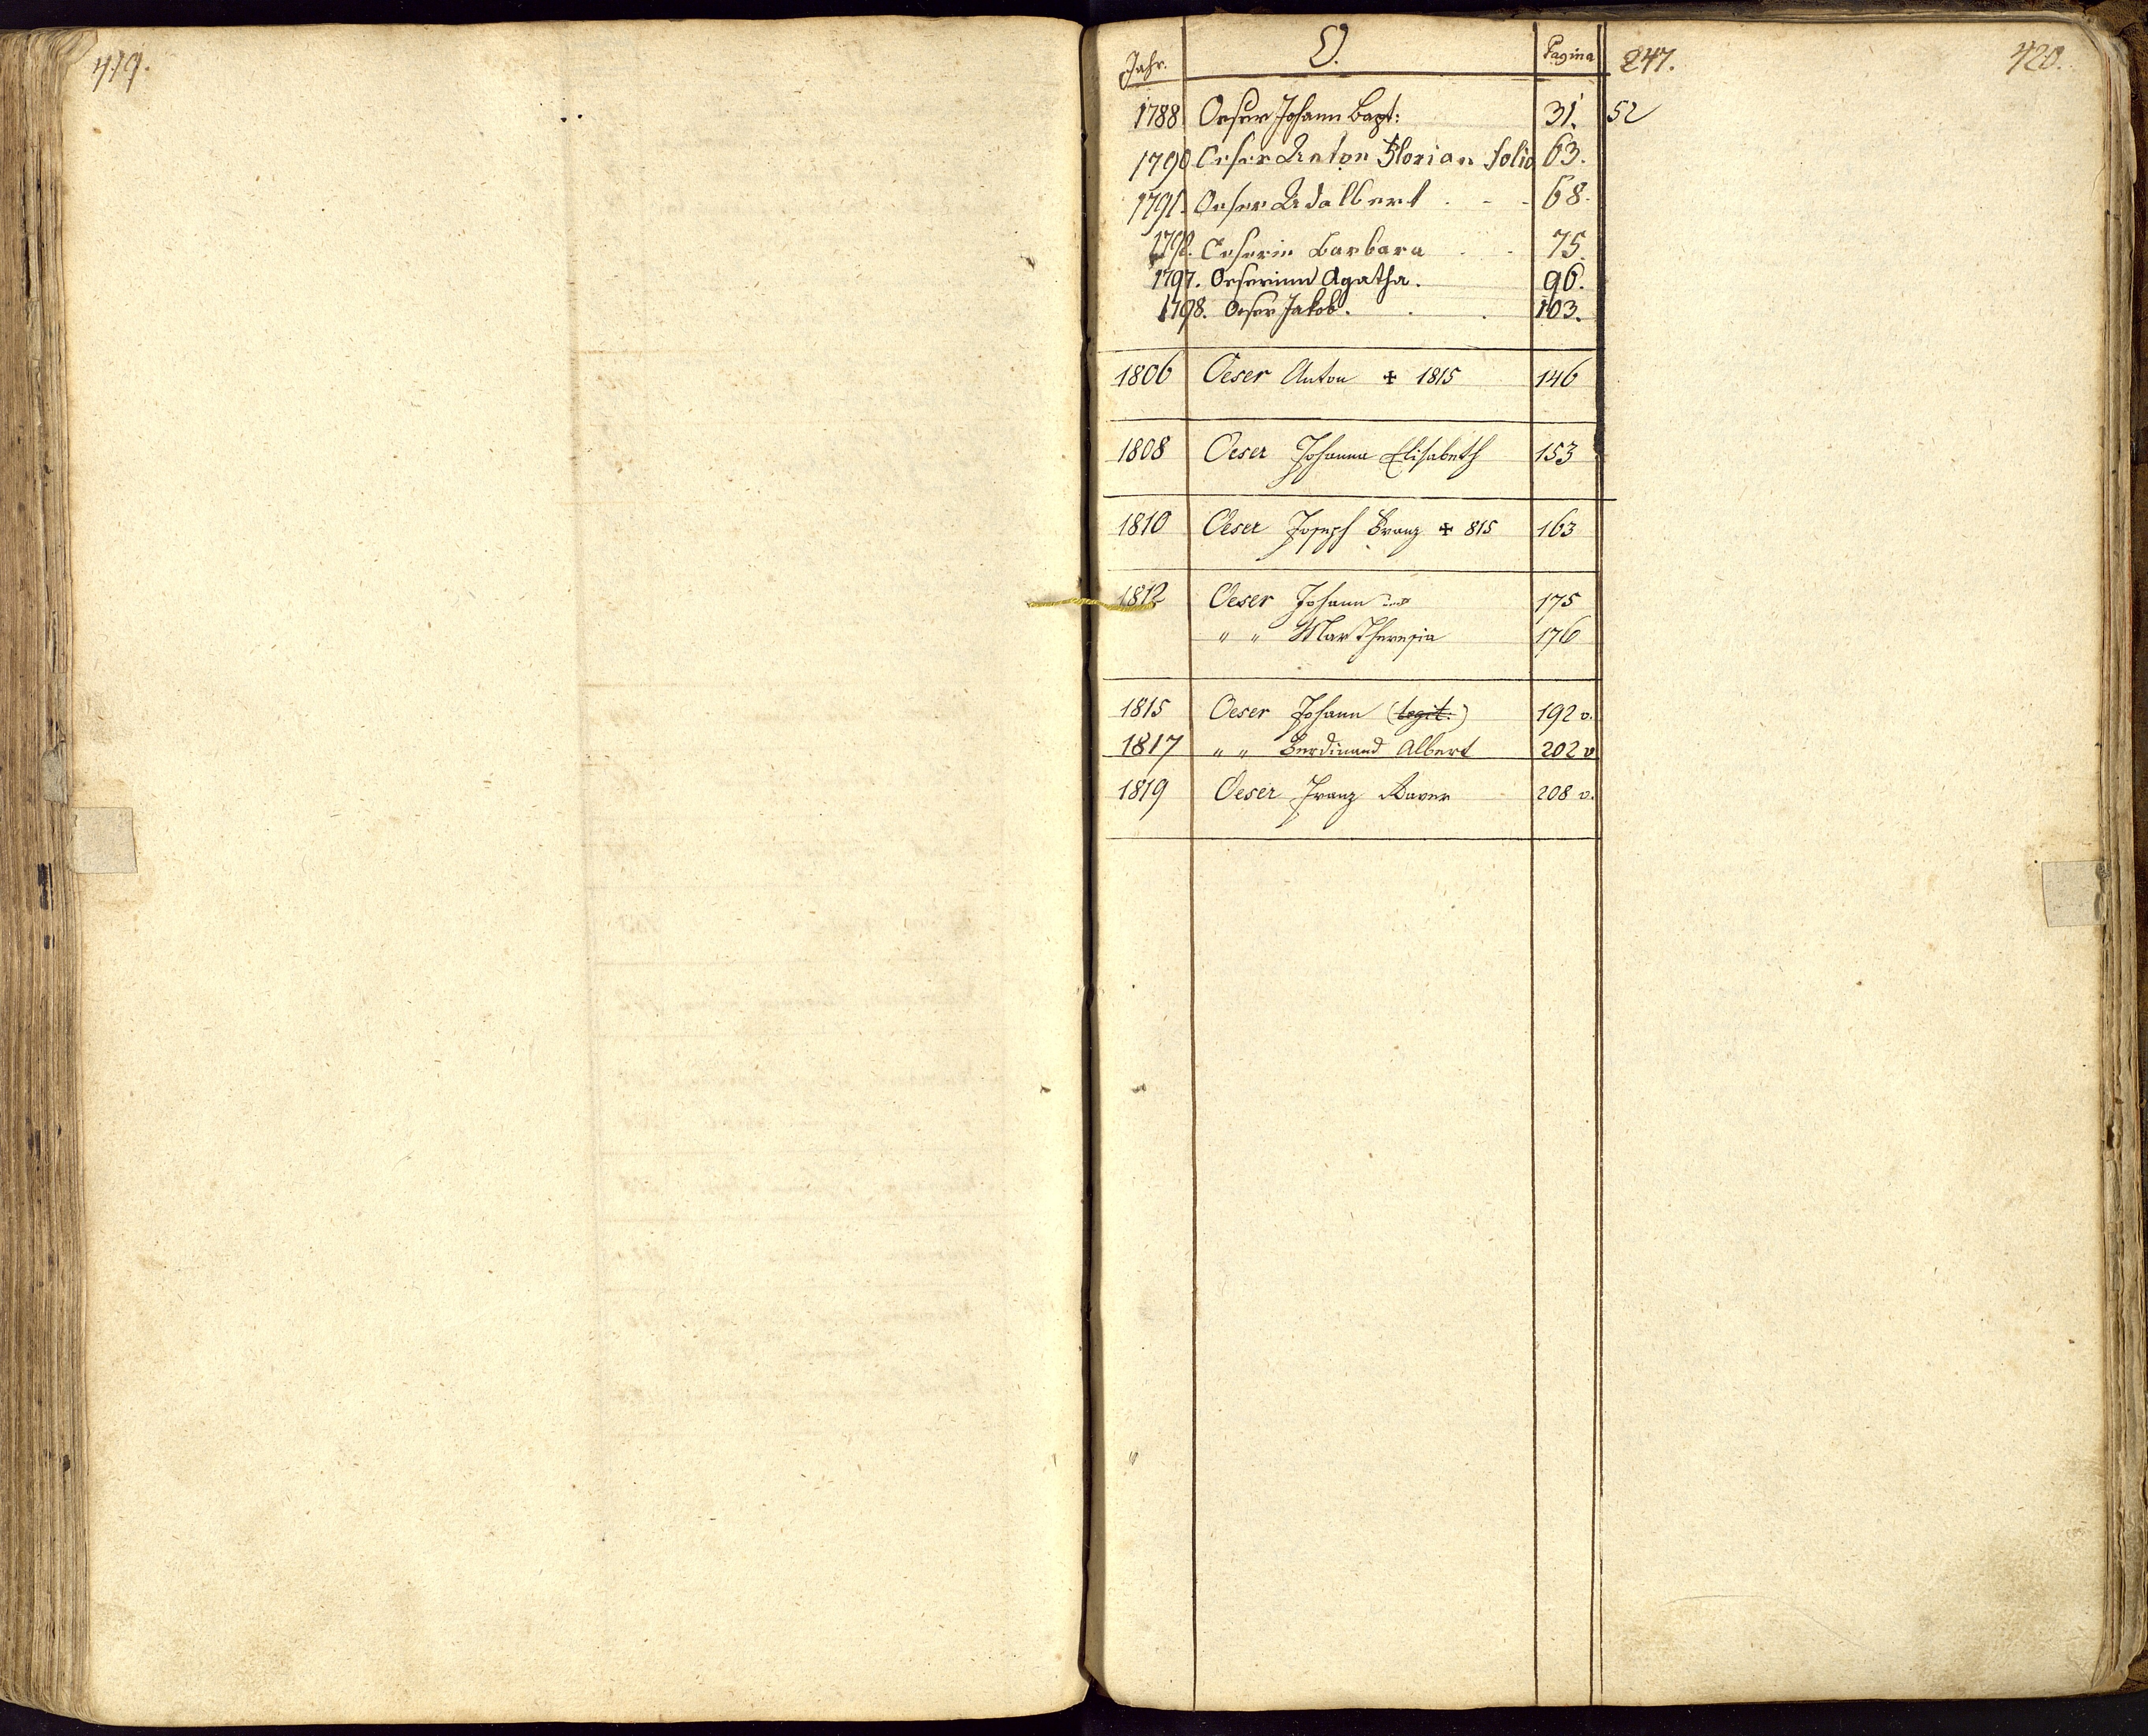 419.
Jahr. O. Pagina 247. 420.
1788 Oeser Johann Bapt: 31. 52
1790 Oeser Anton Florian folio 63.
1791. Oeser Adalbert . - - 68.
1792. Oeserin Barbara . . 75.
1797. Oeserinn Agatha. 96.
1798. Oeser Jakob. . . 103.
1806 Oeser Anton ✠ 1815 146
1808 Oeser Johanna Elisabeth 153
1810 Oeser Joseph Franz ✠ 815 163
1812 Oeser Johann und 175
" " Mar Theresia 176
1815 Oeser Johann (legit:) 192 v.
1817 " " Ferdinand Albert 202 v
1819 Oeser Franz Xaver 208 v.